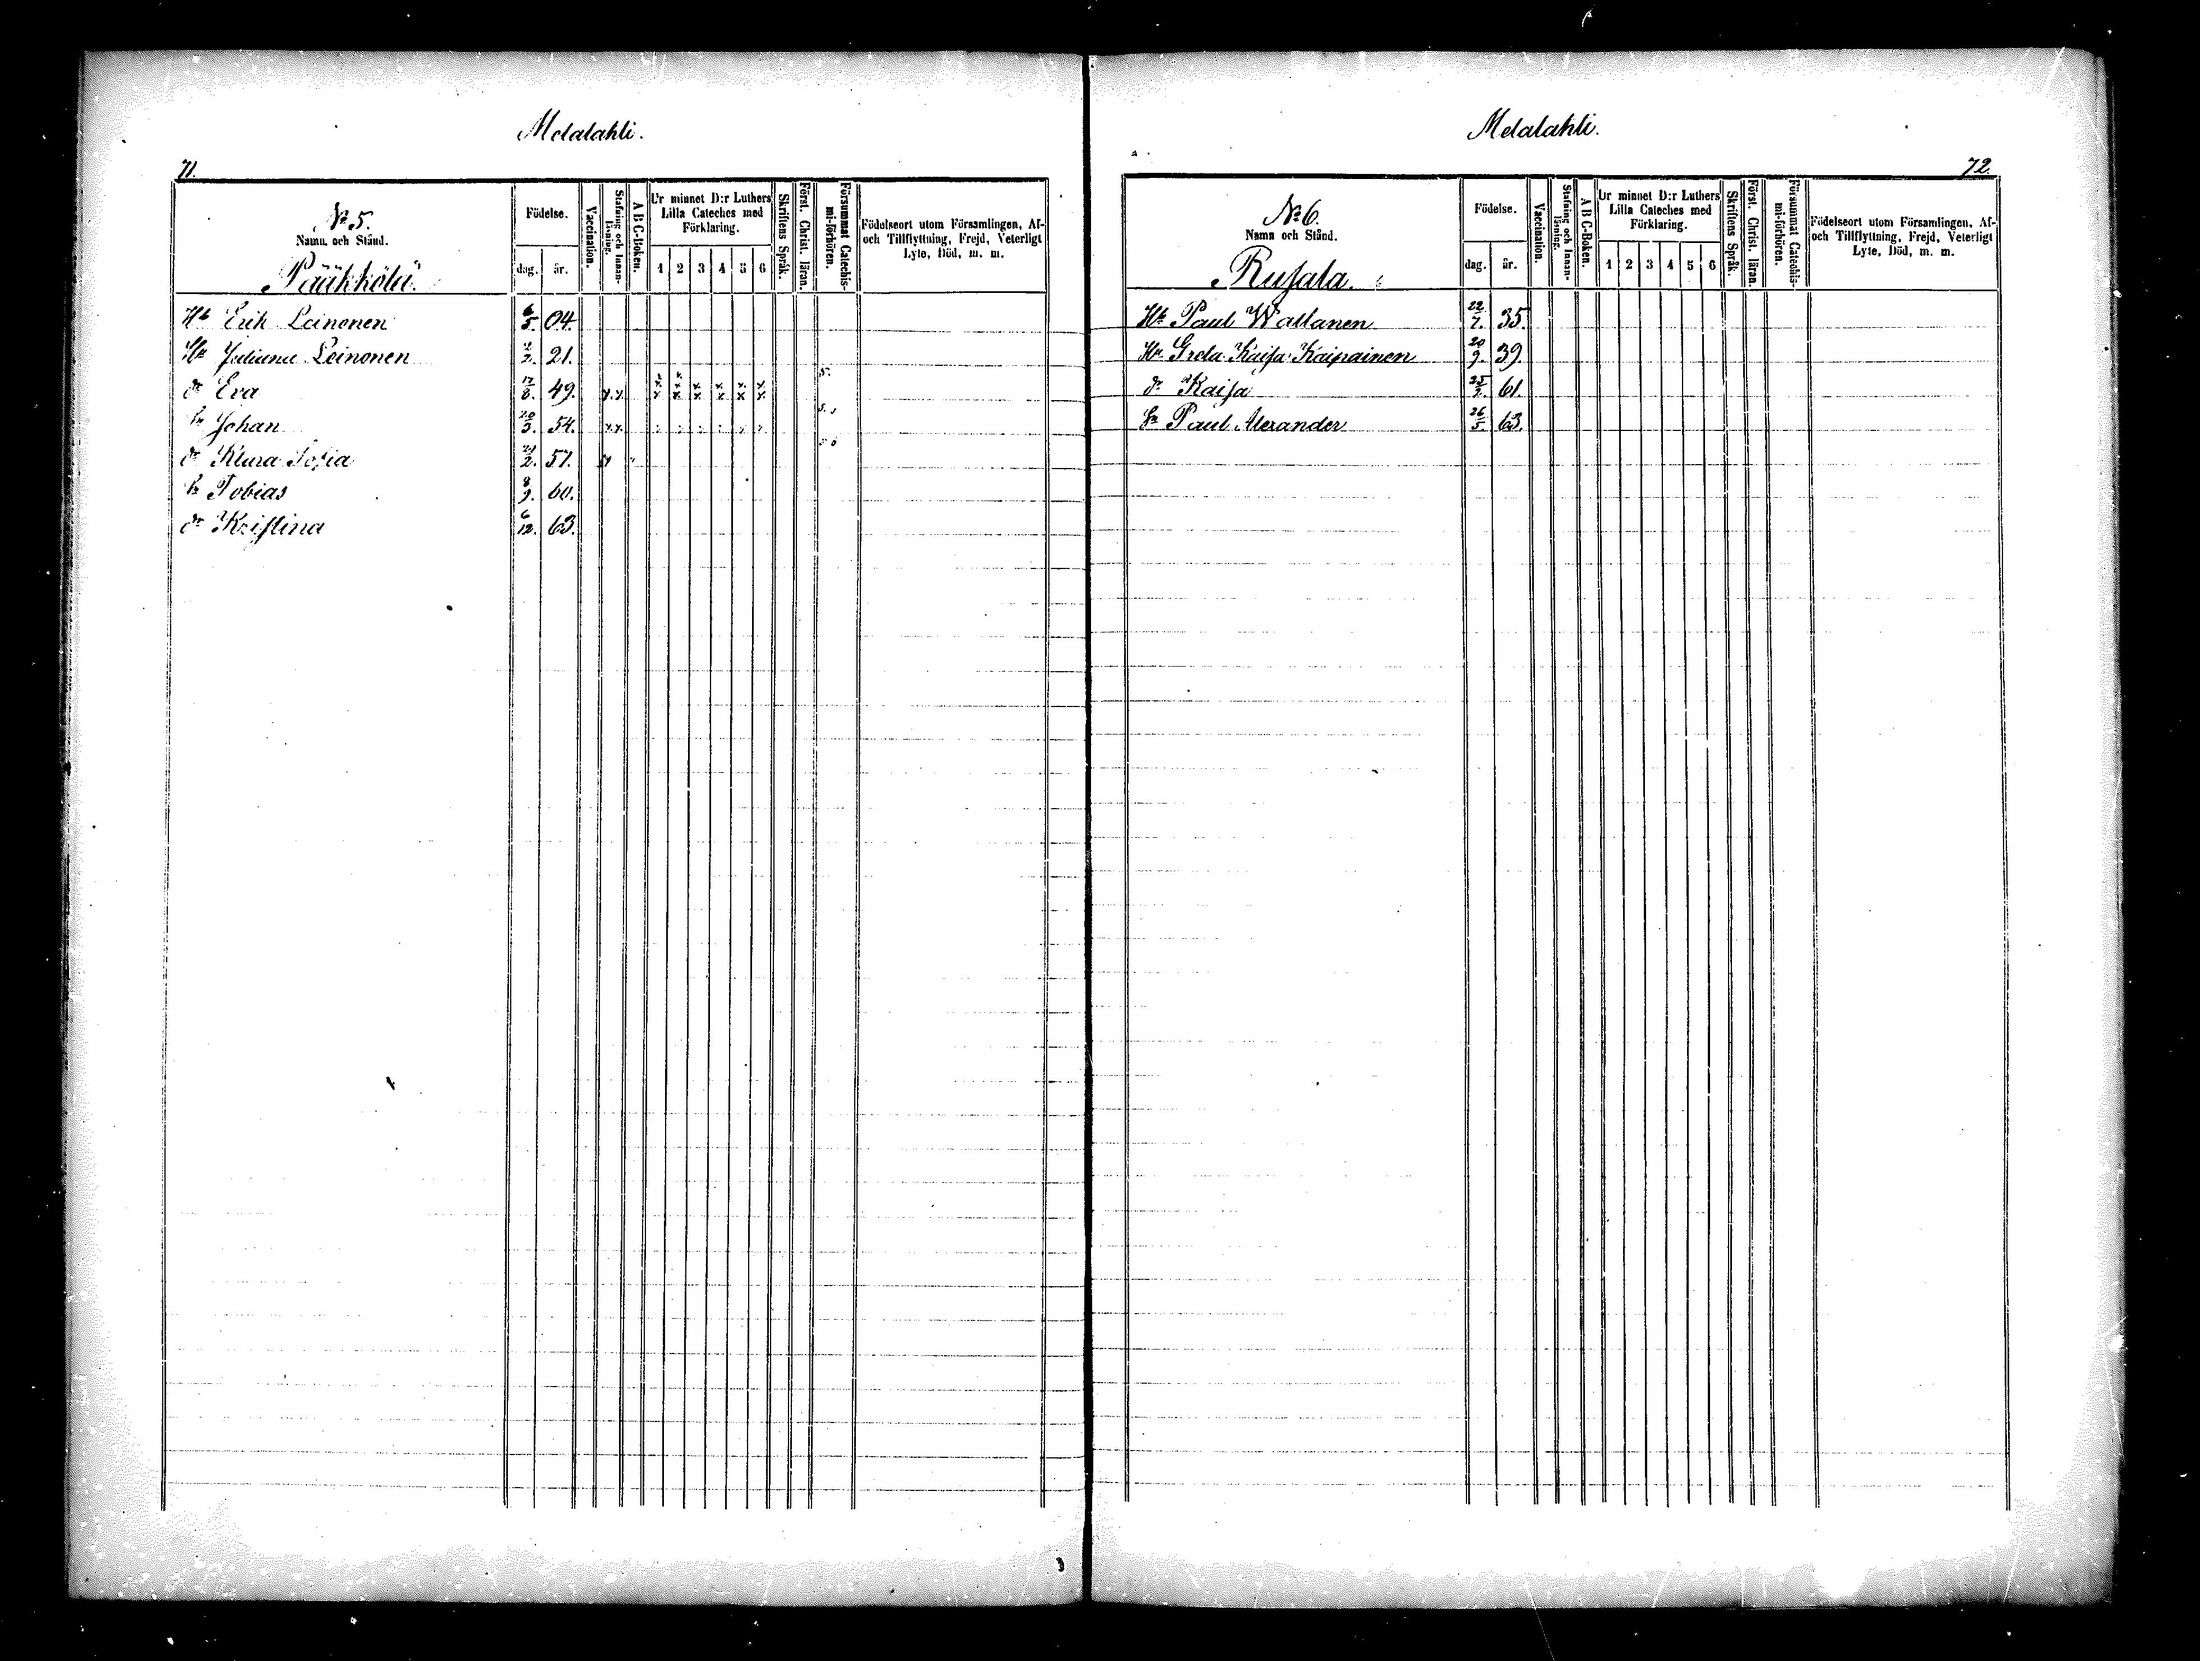 Melalahti.
71.
No 5.
Namn och Stånd.
Födelse.
dag.
år.
Vaccination.
Stafning och Innanläsning.
A B C-Boken.
Ur minnet D:r Luthers
Lilla Cateches med
Förklaring.
1 2 3 4 5 6
Skriftens Språk.
Först. Christ. läran.
Försummat Catechismi-förhören.
Födelseort utom Församlingen, Af-
och Tillflyttning, Frejd, Veterligt
Lyte, Död, m. m.
Päükkölä.
Hb Erik Leinonen 6/5. 04.
Hu Juliana Leinonen 2. 21.
dr Eva 17/3. 49. x x x x x x x x 5.
Sn Johan 20/3. 54. x x
dr Klara Sofia 2. 57.
Sn Tobias 8/9. 60.
dr Kristina 6/12. 63.
Melalahti.
72.
No 6.
Namn och Stånd.
Födelse.
dag.
år.
Vaccination.
Stafning och Innanläsning.
A B C-Boken.
Ur minnet D:r Luthers
Lilla Cateches med
Förklaring.
1 2 3 4 5 6
Skriftens Språk.
Först. Christ. läran.
Försummat Catechismi-förhören.
Födelseort utom Församlingen, Af-
och Tillflyttning, Frejd, Veterligt
Lyte, Död, m. m.
Rusala.
Hb Paul Wallanen 22/7. 35.
Hu Greta Kaisa Kaipainen 20/9. 39.
dr Kaisa 25/2. 61.
Sn Paul Alexander 26/5. 63.